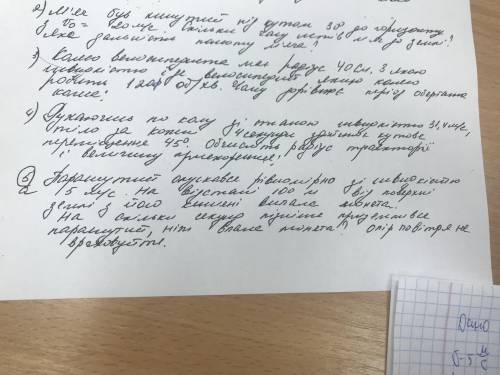 2) М'яч був кинутий під кутом 30° до горизонту
з V₀ = 20 м/с. Скільки часу летів м'яч до землі?
Яка дальність польоту м'яча?
3) Колесо велосипедиста має радіус 40 см. З якою
швидкістю їде велосипедист якщо колесо
робить 120 об/хв. Чому дорівнює період обертання
колеса?
4) Рухаючись по колу зі сталою швидкістю 31,4 м/с,
тіло за кожні 4 секунди здійснює кутове
переміщення 45°. Обчисліть радіус траєкторії
і величину прискорення!
5) Парашутист опускався рівномірно зі швидкістю
а 5 м/с. На відстані 100 м від поверхні
землі з його кишені випала монета.
На скільки секунд пізніше приземлився
парашутист, ніж впала монета? Опір повітря не
враховуйте.
Дано
V-5 м/с